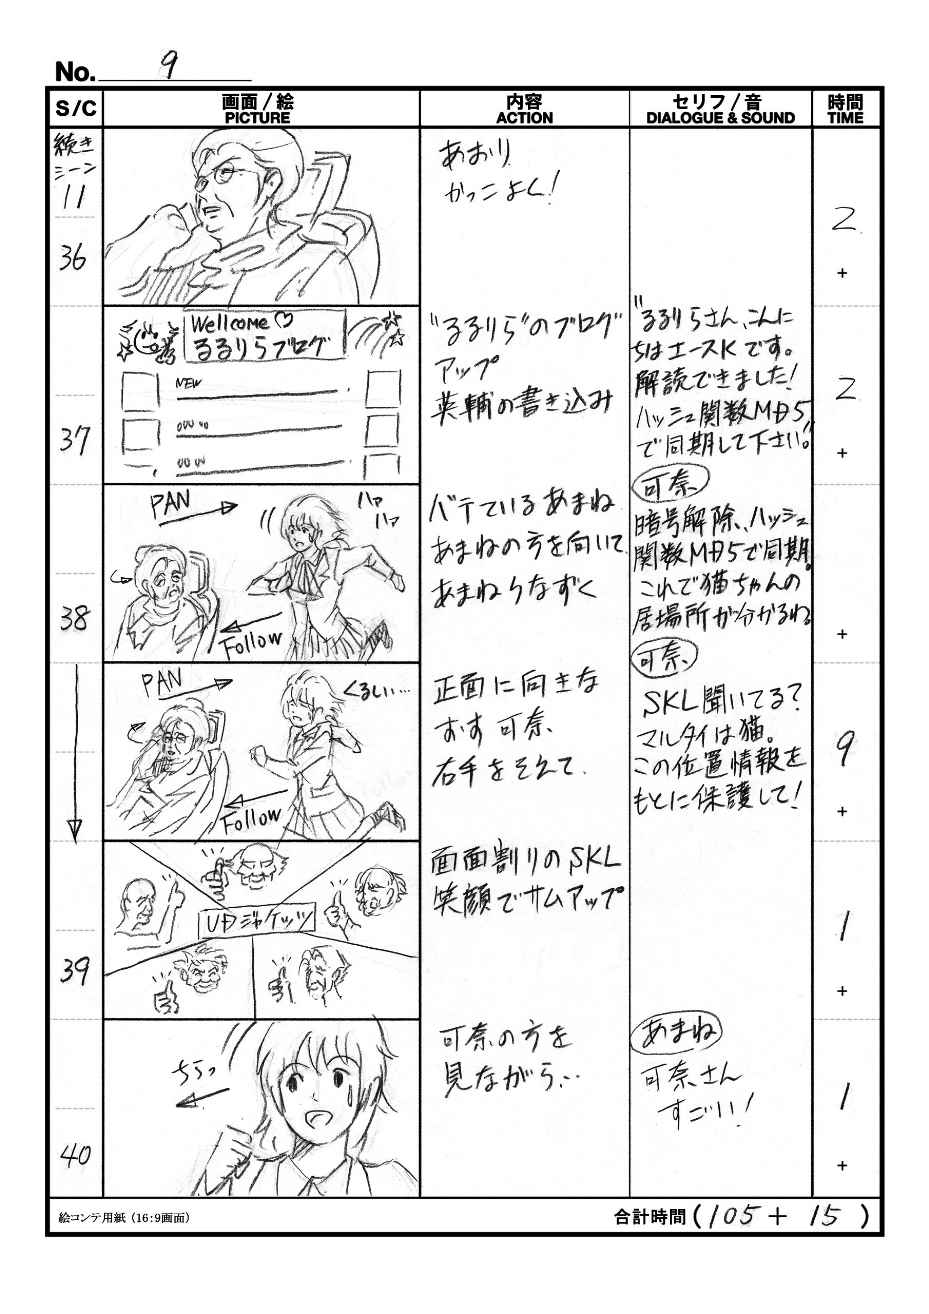 No. 9
S/C
画面/絵
PICTURE
内容
ACTION
セリフ/音
DIALOGUE & SOUND
時間
TIME
続き
シーン
11
36
あおり
かっこよく!
2
+
37
Wellcome♡
るるりらブログ
NEW
"るるりら"のブログ
アップ
英輔の書き込み
"るるりらさん、こんに
ちはエースKです。
解読できました!
ハッシュ関数MD5
で同期して下さい。"
2
+
38
PAN
ハァ
ハァ
Follow
バテているあまね
あまねの方を向いて
あまねうなずく
可奈
暗号解除、ハッシュ
関数MD5で同期。
これで猫ちゃんの
居場所が分かるわ
+
PAN
くるしい…
Follow
正面に向きな
おす可奈、
右手をそえて
可奈
SKL聞いてる?
マルタイは猫。
この位置情報を
もとに保護して!
9
+
39
UDジャケッツ
画面割りのSKL
笑顔でサムアップ
1
+
40
ちらっ
可奈の方を
見ながら…
あまね
可奈さん
すごい!
1
+
絵コンテ用紙(16:9画面)
合計時間(105+15)